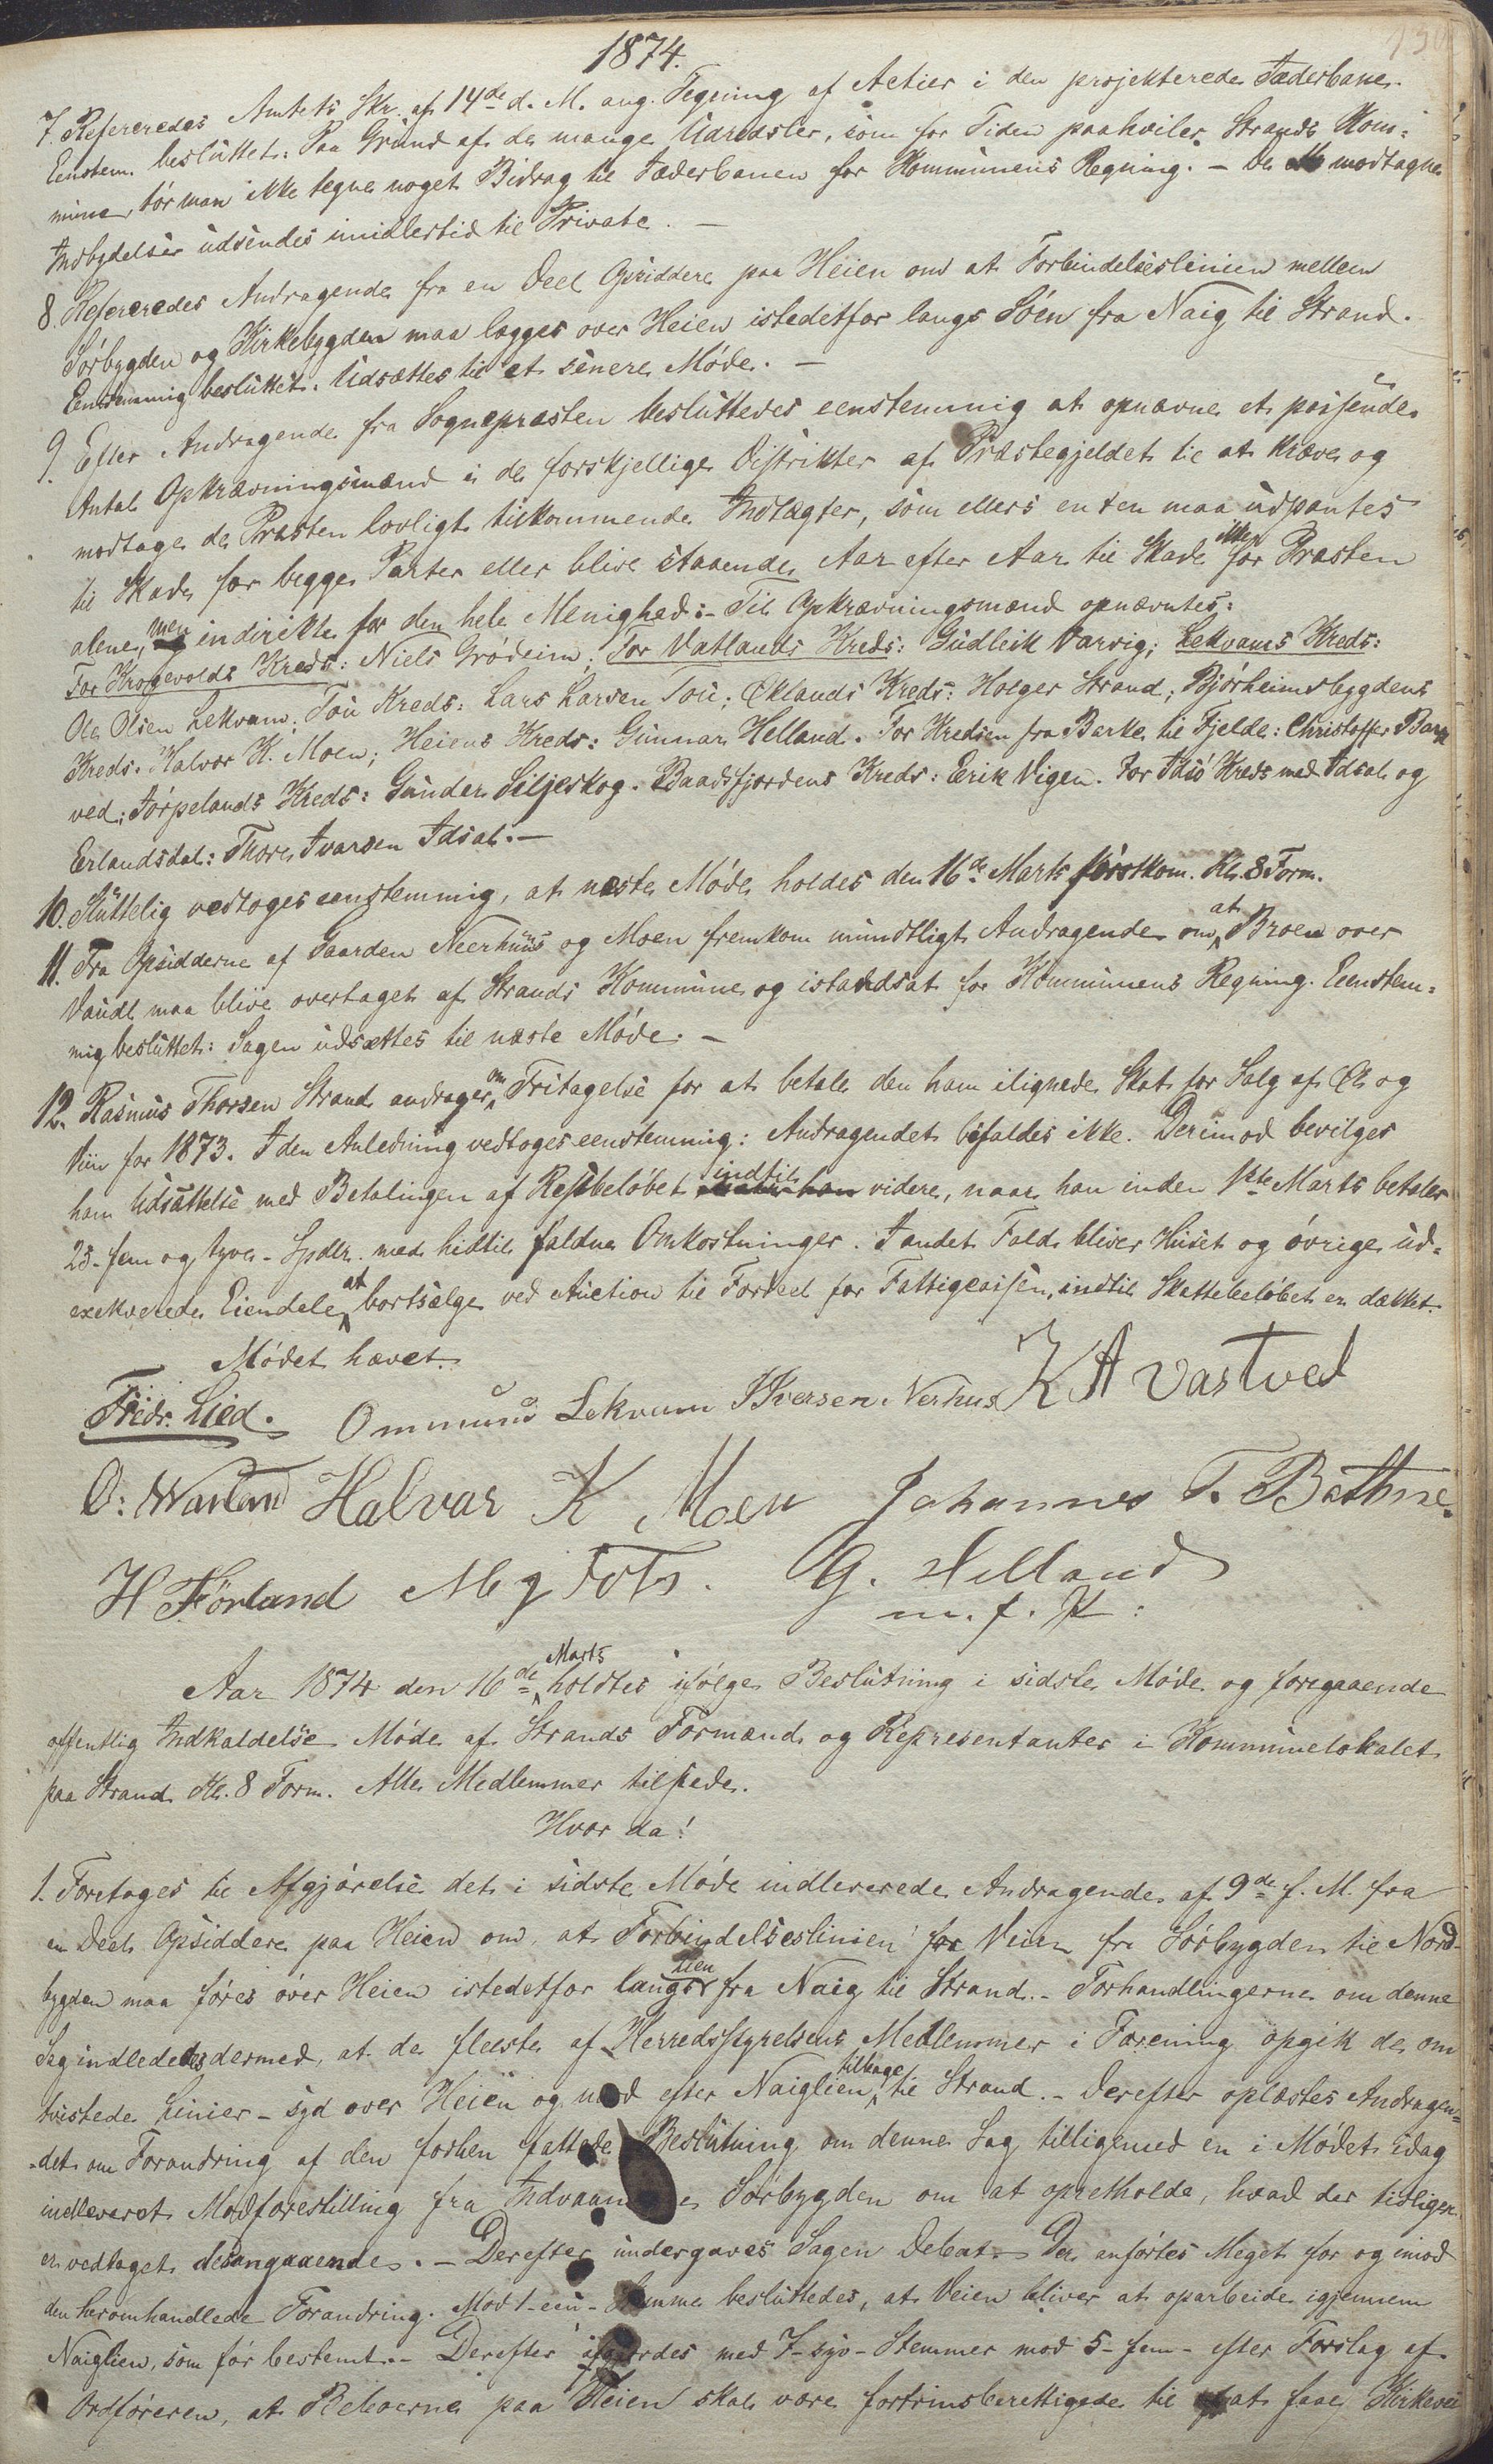 130
1874.
7. Refereredes Amtets Skr. af 14de d. M. ang. Tegning af Actier i den projekterede Jæderbane.
Eenstem. besluttet: Paa Grund af de mange Udredsler, som for Tiden paahviler Strands Kom-
mune, tør man ikke tegne noget Bidrag til Jæderbanen for Kommunens Regning. – De modtagne
Indbydelser udsendes imidlertid til Private. –
8. Refereredes Andragende fra en Deel Opsiddere paa Heien om at Forbindelseslinien mellem
Sørbygden og Kirkebygden maa lægges over Heien istedetfor langs Søen fra Naig til Strand.
Eenstemmig besluttet: Udsættes til et senere Møde. –
9. Efter Andragende fra Sognepræsten besluttedes eenstemmig at opnævne et passende
Antal Opkrævningsmænd i de forskjellige Distrikter af Præstegjeldet til at kræve og
modtage de Præsten lovligt tilkommende Indtægter, som ellers enten maa udpantes
til Skade for begge Parter eller blive staaende Aar efter Aar til Skade ikke for Præsten
alene, men indirekte for den hele Menighed: – Til Opkrævningsmænd opnævntes:
For Krogevolds Kreds: Niels Grødeim; For Vatlands Kreds: Gudleik Barvig; Lekvams Kreds:
Ole Olsen Lekvam; Tou Kreds: Lars Larsen Tou; Øklands Kreds: Holger Strand; Bjørheimsbygdens
Kreds: Halvor K. Moen; Heiens Kreds: Gunnar Helland. For Kredsen fra Barke til Fjelde: Christoffer Bark
ved; Jørpelands Kreds: Gunder Siljeskog. Baadsfjordens Kreds: Erik Vigen. For Idsø Kreds med Idsal og
Erlandsdal: Thore Ivarsen Idsal. –
10. Sluttelig vedtoges eenstemmig, at næste Møde holdes den 16de Marts førstkom. Kl. 8 Form.
11. Fra Opsidderne af Gaarden Neerhuus og Moen fremkom mundtligt Andragende om at Broen over
Vaadl maa blive overtaget af Strands Kommune og istandsat for Kommunens Regning. Eenstem-
mig besluttet: Sagen udsættes til næste Møde. –
12. Rasmus Thorsen Strand andrager om Fritagelse for at betale den ham ilignede Skat for Salg af Øl og
Viin for 1873. I den Anledning vedtoges eenstemmig: Andragendet bifaldes ikke. Derimod bevilges
ham Udsættelse med Betalingen af Restbeløbet indtil videre, naar han inden 1ste Marts betaler
25 – fem og tyve – Spdlr. med hidtil faldne Omkostninger. I andet Fald bliver Huset og øvrige ud-
exekverede Eiendele at bortsælge ved Auction til Fordeel for Fattigcassen, indtil Skattebeløbet er dækket.
Mødet hævet.
Fredr. Lied. Ommund Lekvam I Iversen Nerhus K A Vastved
O: Watland Halvar K Moen Johannes T. Bathne.
H Førland M g Tots. G. Helland
m. f. P:
Aar 1874 den 16de Marts holdtes ifølge Beslutning i sidste Møde og foregaaende
offentlig Indkaldelse Møde af Strands Formænd og Repræsentanter i Kommunelokalet
paa Strand Kl. 8 Form. Alle Medlemmer tilstede.
Hvor da!
1. Foretoges til Afgjørelse det i sidste Møde indleverede Andragende af 9de f. M. fra
en Deel Opsiddere paa Heien om, at Forbindelseslinien for Veien fra Sørbygden til Nord-
bygden maa føres over Heien istedetfor langs Lien fra Naig til Strand. – Forhandlingerne om denne
Sag indlededes dermed, at de fleste af Herredsstyrelsens Medlemmer i Forening opgik de om
tvistede Linier – syd over Heien og nord efter Naiglien tilbage til Strand. – Derefter oplæstes Andragen-
det om Forandring af den forhen fattede Beslutning om denne Sag tilligemed en i Mødet idag
indleveret Modforestilling fra Indvaanerne Sørbygden om at opretholde, hvad der tidligere
er vedtaget desangaaende. – Derefter undergaves Sagen Debat. Der anførtes Meget for og imod
den heromhandlede Forandring. Mod 1 – een – Stemme besluttedes, at Veien bliver at oparbeide igjennem
Naiglien, som før bestemt. – Derefter afgjordes med 7 – syv – Stemmer mod 5 – fem – efter Forslag af
Ordføreren, at Beboerne paa Heien skal være fortrinsberettigede til at faae Kirkevei